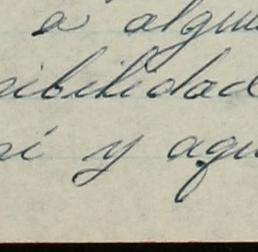 a algu
ibilidad
í y aqu